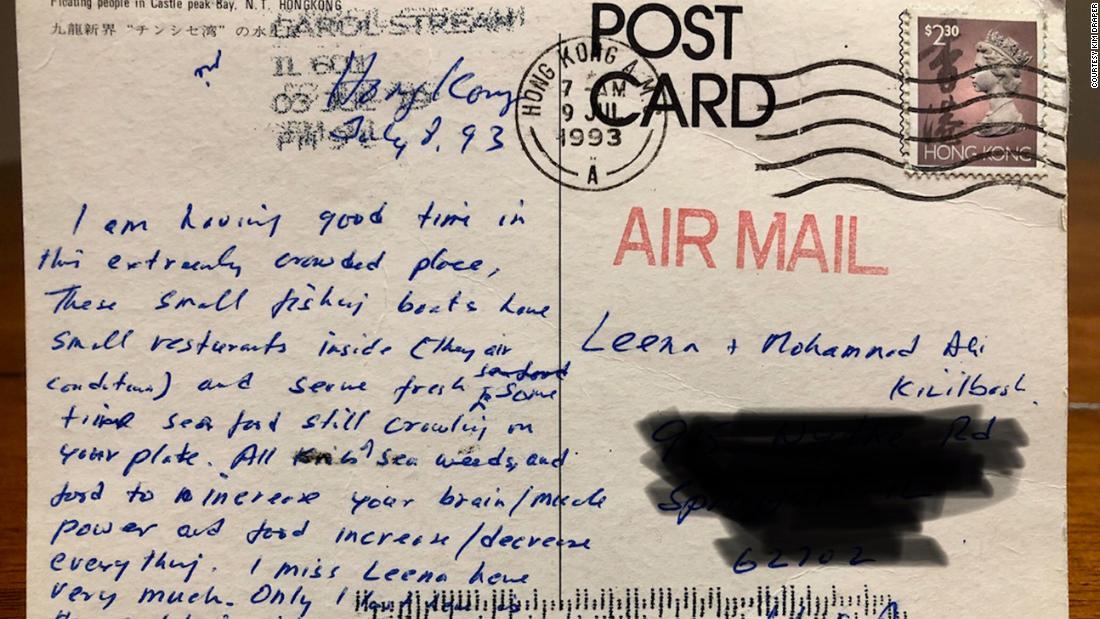 Floating people in Castle peak Bay, N. T. HONGKONG
九龍新界 “チンシセ湾” の水
CAROL STREAM
IL 601
03 JUL
PM
Hong Kong
July 8, 93
POST
CARD
HONG KONG
7 AM
9 JUL
1993
A
$2.30
香港
HONG KONG
COURTESY KIM DRAPER
AIR MAIL
I am having good time in
this extremely crowded place,
These small fishing boats have
small resturants inside (they air
condition) and serve fresh seafood some
time sea food still crawling on
your plate. All sea weeds, and
food to increase your brain/muscle
power and food increase/decrease
every thing. I miss Leena here
very much. Only I
Leena + Mohammed Ali
Kizilbash
Rd
62702